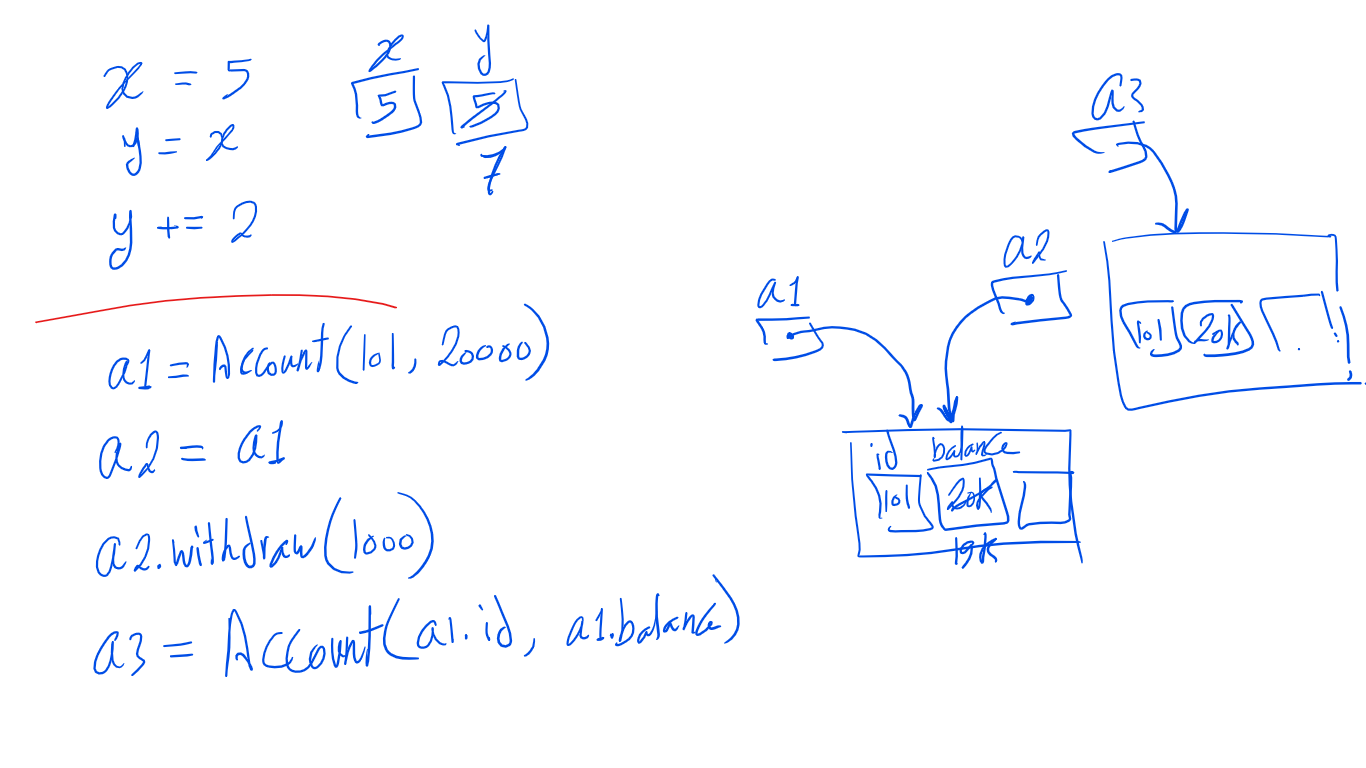 x = 5
y = x
y += 2
x y
5 5
7
a1 = Account(101, 20000)
a2 = a1
a2.withdraw(1000)
a3 = Account(a1.id, a1.balance)
a1
a2
a3
id balance
101 20K
19K
101 20K